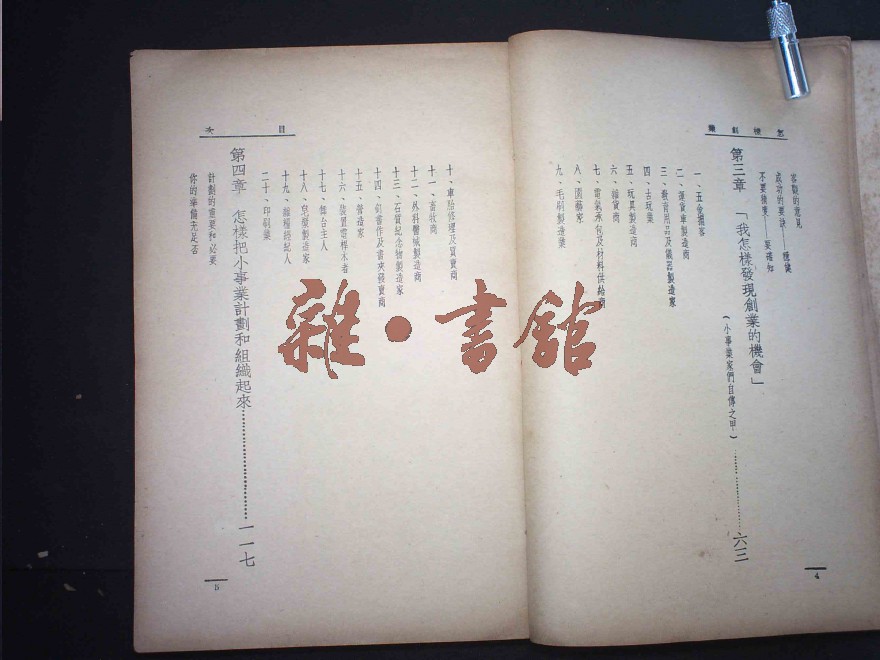 客觀的意見
成功的要訣——穩健
不要猜度——要確知
第三章 「我怎樣發現創業的機會」
(小事業家們自傳之甲)……六三
一、五金掮客
二、運貨車製造商
三、教育用品及儀器製造家
四、古玩業
五、玩具製造商
六、雜貨商
七、電氣承包及材料供給商
八、園藝家
九、毛刷製造業
4
目次
十、車胎修理及買賣商
十一、畜牧商
十二、外科醫械製造商
十三、石質紀念物製造家
十四、釘書作及書夾發賣商
十五、營造家
十六、裝置電桿木者
十七、舞台主人
十八、兒服製造家
十九、雜糧經紀人
二十、印刷業
第四章 怎樣把小事業計劃和組織起來……一一七
計劃的重要和必要
你的準備充足否
5
雜·書館